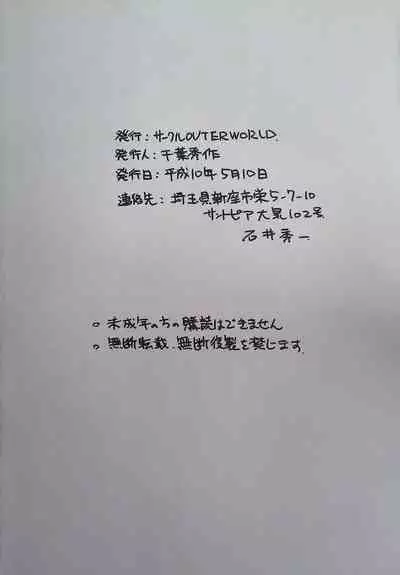 発行：サークルOUTERWORLD.
発行人：千葉秀作
発行日：平成10年5月10日
連絡先：埼玉県新座市栄5-7-10
サントピア大気102号
石井秀一
○ 未成年の方の購読はできません
○ 無断転載、無断複製を禁じます.